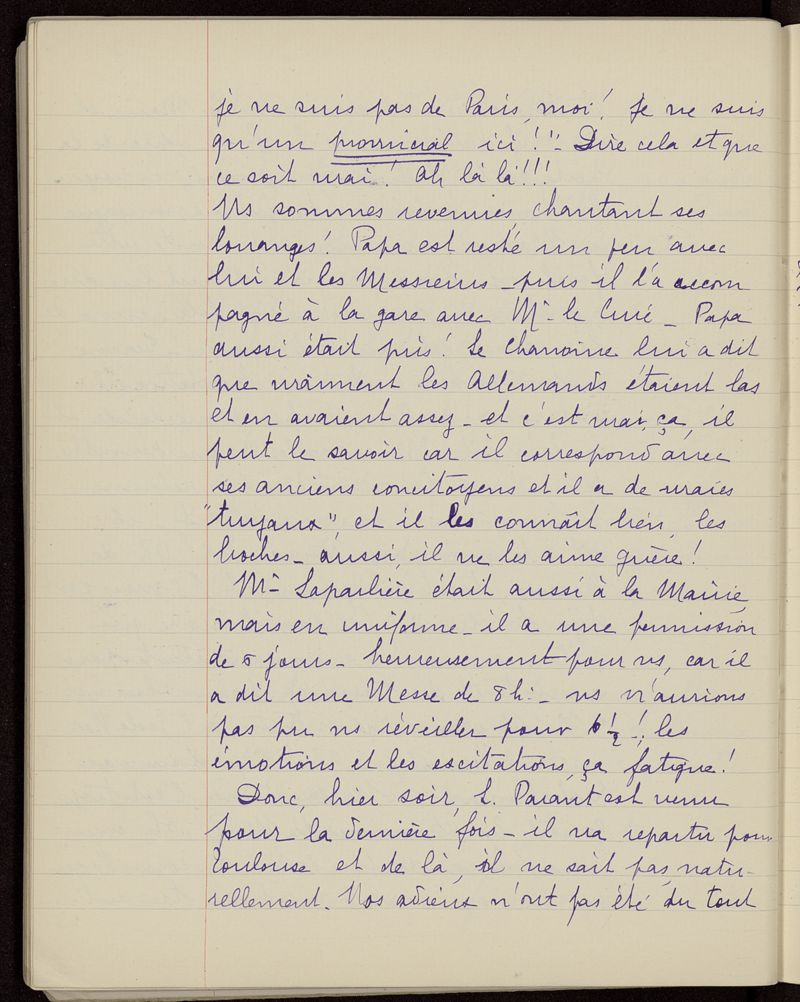 je ne suis pas de Paris, moi! je ne suis
qu'un provincial ici!"- Dire cela et que
ce soit vrai! Ah là là!!!
Ns sommes revenues, chantant ses
louanges! Papa est resté un peu avec
lui et les Messieurs - puis il l'a accom
pagné à la gare avec Mr le Curé - Papa
aussi était pris! Le Chanoine lui a dit
que vraiment les Allemands étaient las
et en avaient assez - et c'est vrai, ça, il
peut le savoir car il correspond avec
ses anciens concitoyens et il a de vraies
"tuyaux", et il les connaît bien, les
boches - aussi, il ne les aime guère!
Mr Laparlière était aussi à la Mairie,
mais en uniforme - il a une permission
de 8 jours - heureusement pour ns, car il
a dit une Messe de 8h: - ns n'aurions
pas pu ns réveiller pour 6 1/2!, les
émotions et les excitations, ça fatigue!
Donc, hier soir, L. Parant est venu
pour la dernière fois - il va repartir pour
Toulouse et de là, il ne sait pas, natu-
rellement. Nos adieux n'ont pas été du tout